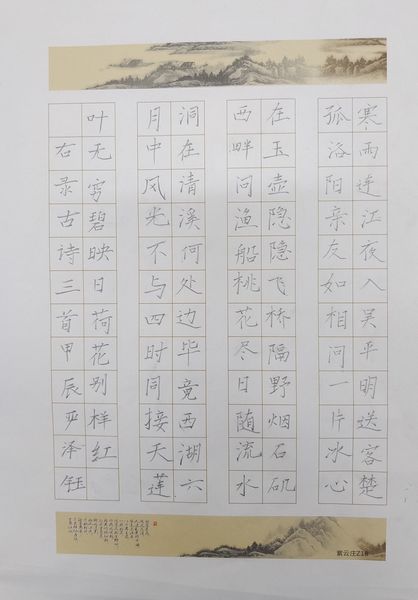 寒雨连江夜入吴平明送客楚
孤洛阳亲友如相问一片冰心
在玉壶隐隐飞桥隔野烟石矶
西畔问渔船桃花尽日随流水
洞在清溪何处边毕竟西湖六
月中风光不与四时同接天莲
叶无穷碧映日荷花别样红
右录古诗三首甲辰严泽钰
紫云庄Z18